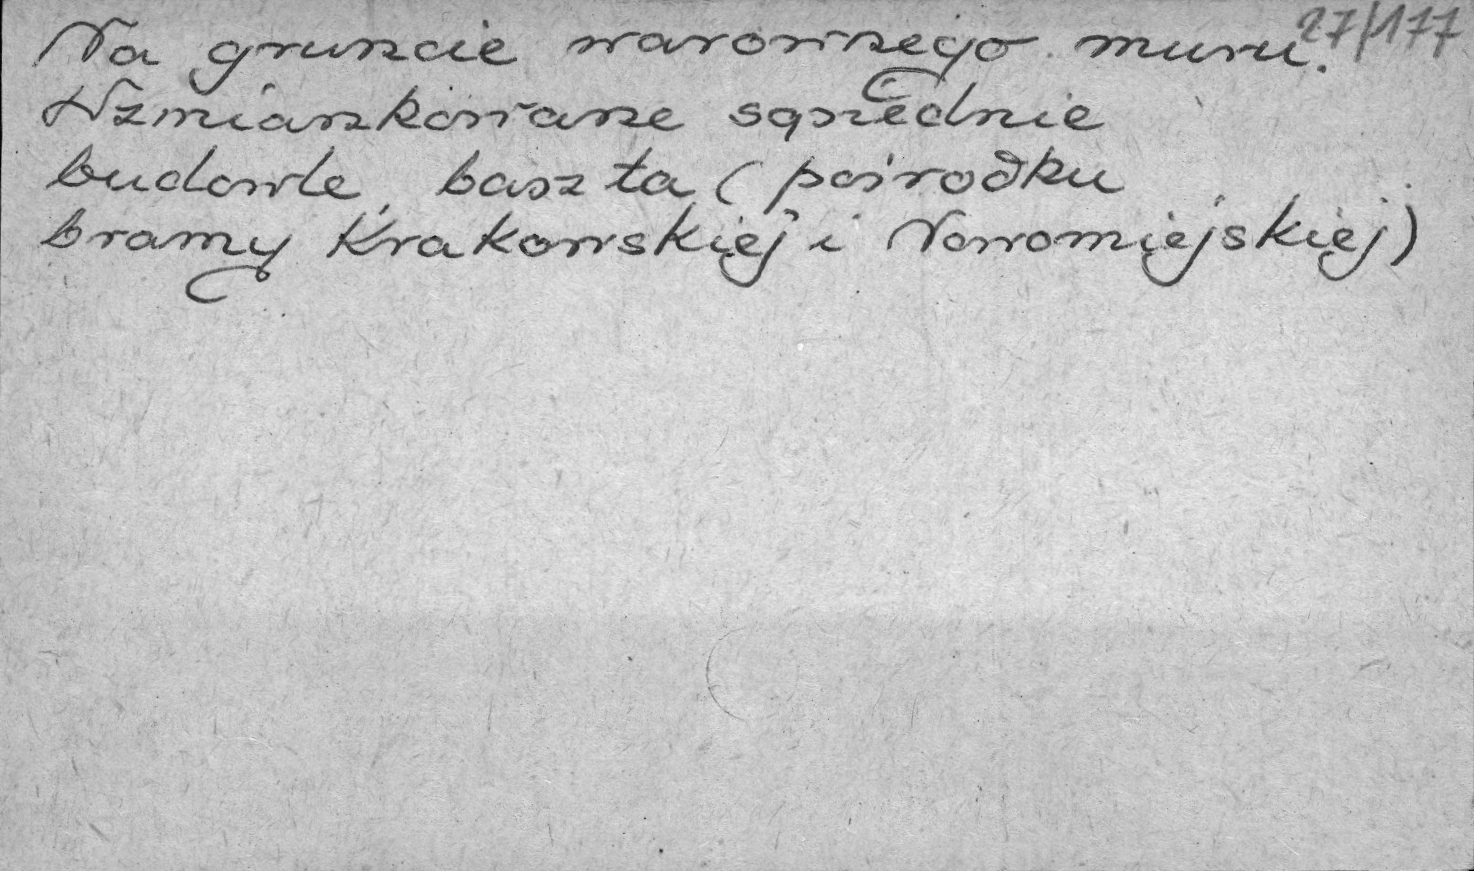 27/177
Na gruncie warownego muru.
Wzmiankowane sąsiednie
budowle, baszta (pośrodku
bramy Krakowskiej i Nowomiejskiej)